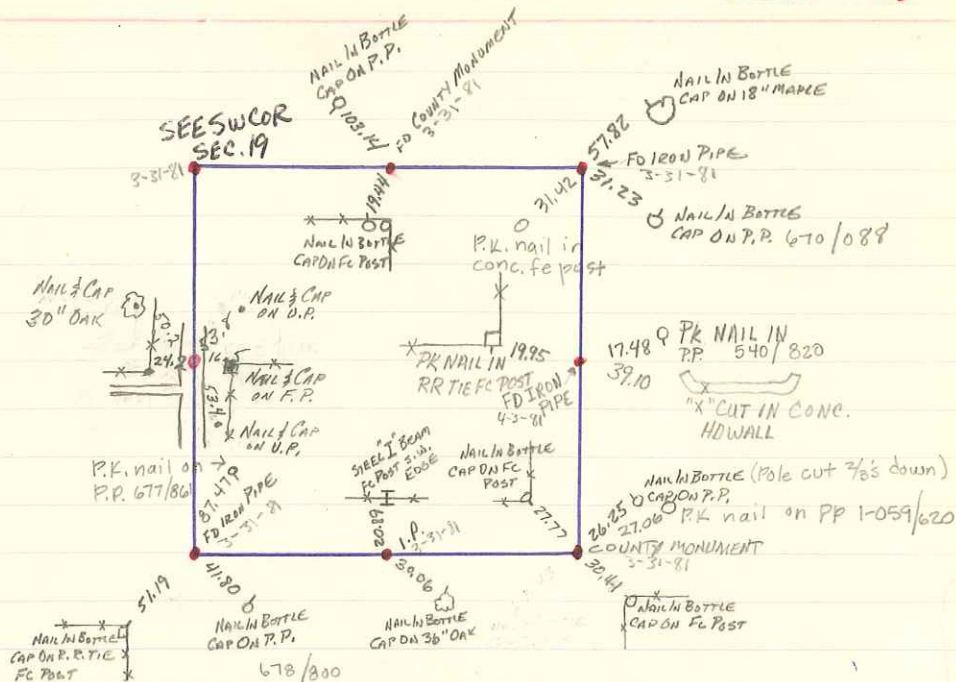 NAIL IN BOTTLE
CAP ON P.P.
103.14
FD COUNTY MONUMENT
3-31-81
NAIL IN BOTTLE
CAP ON 18" MAPLE
57.82
FD IRON PIPE
3-31-81
31.23
NAIL IN BOTTLE
CAP ON P.P. 670/088
SEE SW COR
SEC. 19
3-31-81
19.44
NAIL IN BOTTLE
CAP ON FC POST
31.42
P.K. nail in
conc. fe post
NAIL & CAP
30" OAK
NAIL & CAP
ON U.P.
24.2
NAIL & CAP
ON F.P.
53.40
NAIL & CAP
ON U.P.
PK NAIL IN 19.95
RR TIE FC POST
FD IRON
PIPE
4-3-81
17.48
PK NAIL IN
P.P. 540/820
39.10
"X" CUT IN CONC.
HDWALL
P.K. nail on
P.P. 677/861
87.47
FD IRON PIPE
3-31-81
STEEL "I" BEAM
FC POST S.W.
EDGE
20.89
I.P.
3-31-81
NAIL IN BOTTLE
CAP ON FC
POST
27.77
NAIL IN BOTTLE (Pole cut 2/3's down)
CAP ON P.P.
26.25
27.06
P.K nail on PP 1-059/620
COUNTY MONUMENT
3-31-81
30.41
NAIL IN BOTTLE
CAP ON FC POST
51.19
NAIL IN BOTTLE
CAP ON R.R. TIE
FC POST
41.80
NAIL IN BOTTLE
CAP ON P.P.
678/800
39.06
NAIL IN BOTTLE
CAP ON 36" OAK